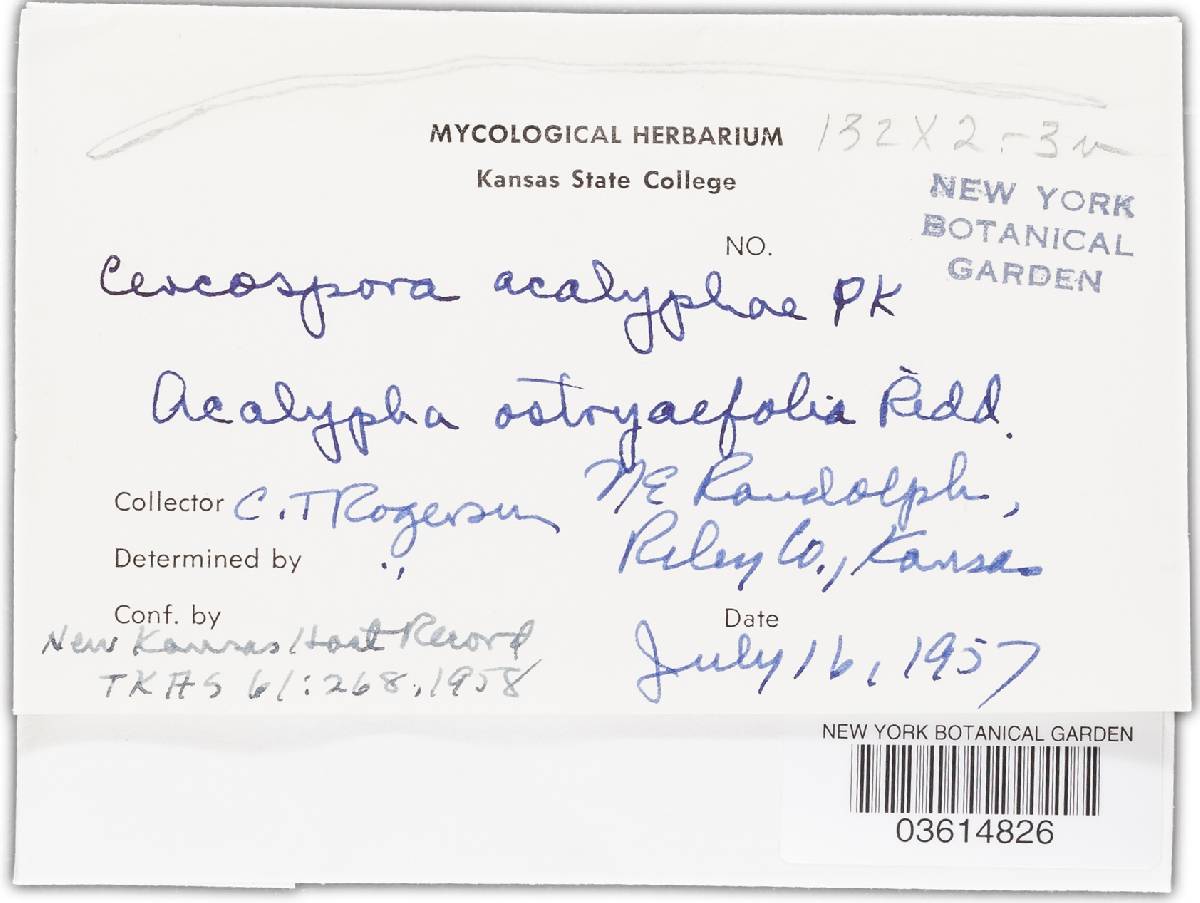 MYCOLOGICAL HERBARIUM 132 X 2-3
Kansas State College
NEW YORK
BOTANICAL
GARDEN
NO.
Cercospora acalyphae PK
Acalypha ostryaefolia Ridd.
Collector C.T Rogerson NE Randolph,
Riley Co., Kansas
Determined by ''
Conf. by
New Kansas Host Record
TKAS 61:268, 1958
Date
July 16, 1957
NEW YORK BOTANICAL GARDEN
03614826